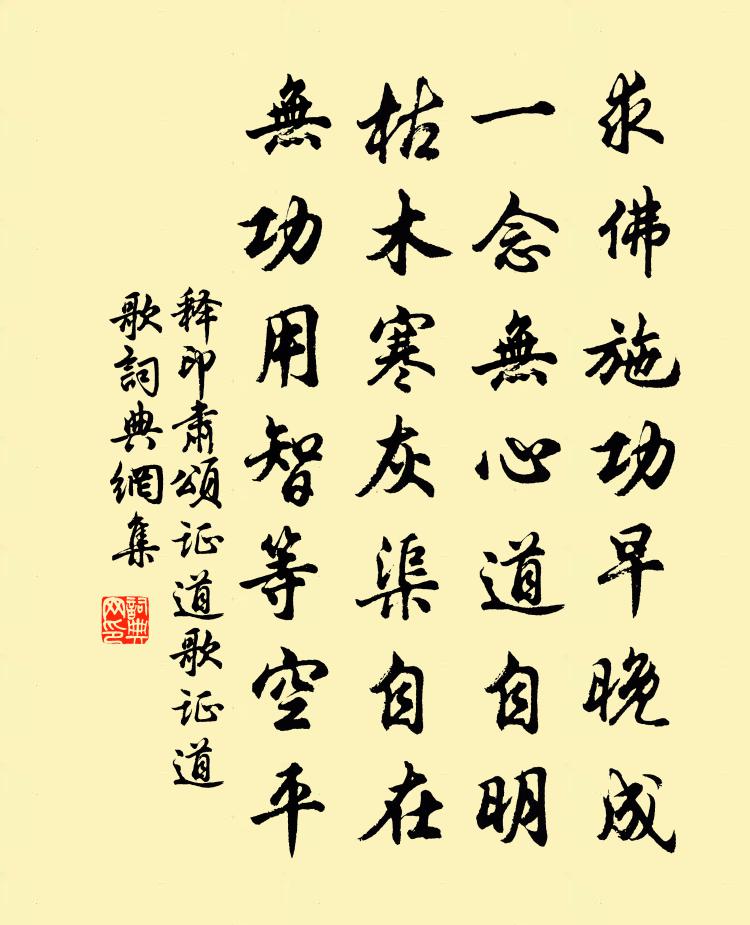 求佛施功早晚成
一念無心道自明
枯木寒灰渠自在
無功用智等空平
释印肃頌证道歌证道
歌詞典網集
詞典
网印